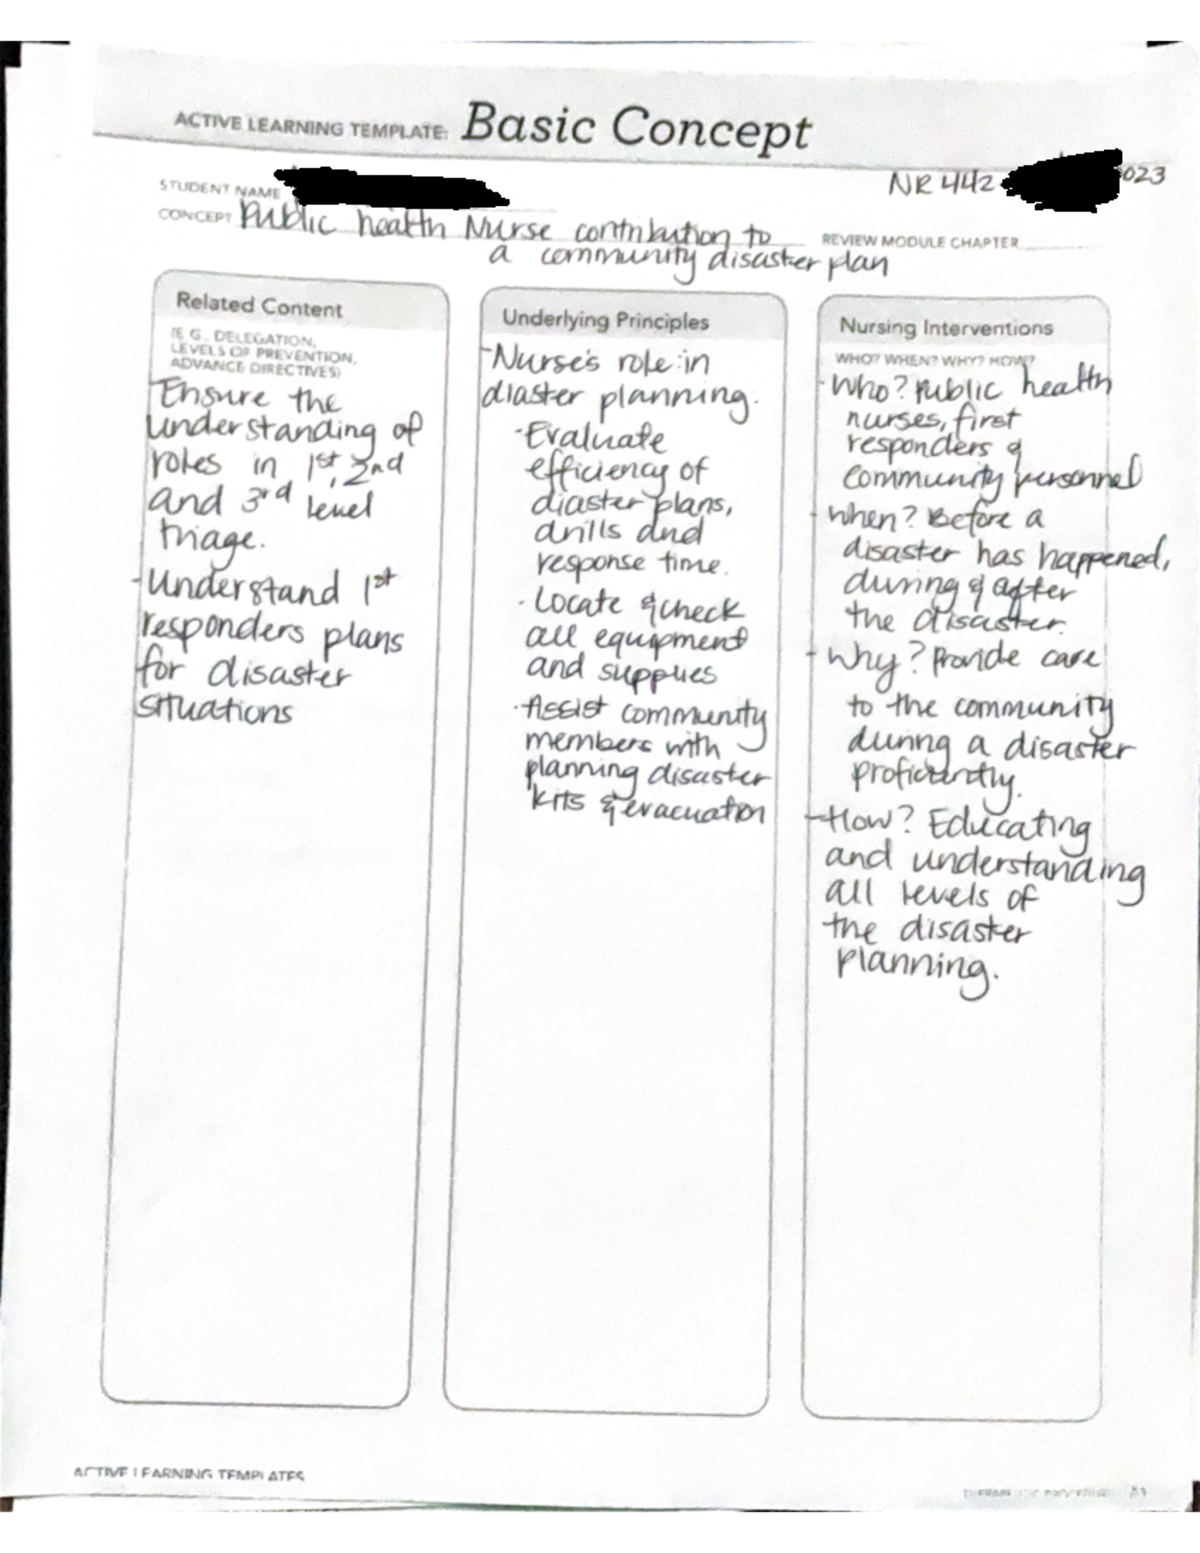 ACTIVE LEARNING TEMPLATE: Basic Concept
NR 442 023
STUDENT NAME
CONCEPT Public health Nurse contribution to
a community disaster plan
REVIEW MODULE CHAPTER
Related Content
(E.G., DELEGATION,
LEVELS OF PREVENTION,
ADVANCE DIRECTIVES)
-Ensure the
understanding of
roles in 1st, 2nd
and 3rd level
triage.
-Understand 1st
responders plans
for disaster
situations
Underlying Principles
-Nurse's role in
diaster planning.
·Evaluate
efficiency of
diaster plans,
drills and
response time.
·Locate & check
all equipment
and supplies
·Assist community
members with
planning disaster
kits & evacuation
Nursing Interventions
WHO? WHEN? WHY? HOW?
-Who? Public health
nurses, first
responders &
community personnel
-When? Before a
disaster has happened,
during & after
the disaster.
-Why? Provide care
to the community
during a disaster
-How? Educating
and understanding
all levels of
the disaster
planning.
ACTIVE LEARNING TEMPLATES